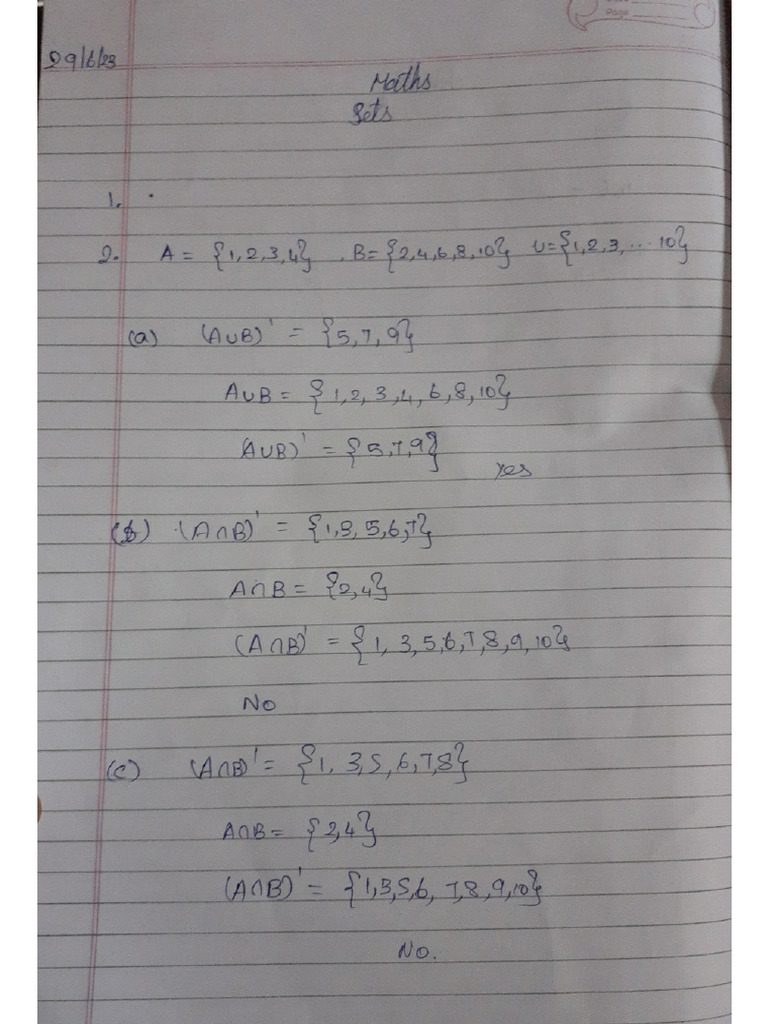 Page
29/6/23
Maths
Sets
1. .
2. A = {1,2,3,4} , B= {2,4,6,8,10} U={1,2,3, ... 10}
(a) (A∪B)' = {5,7,9}
A∪B = {1,2,3,4,6,8,10}
(A∪B)' = {5,7,9}
Yes
(b) (A∩B)' = {1,3,5,6,7}
A∩B = {2,4}
(A∩B)' = {1, 3,5,6,7,8,9,10}
No
(c) (A∩B)' = {1, 3,5,6,7,8}
A∩B = {2,4}
(A∩B)' = {1,3,5,6, 7,8,9,10}
No.